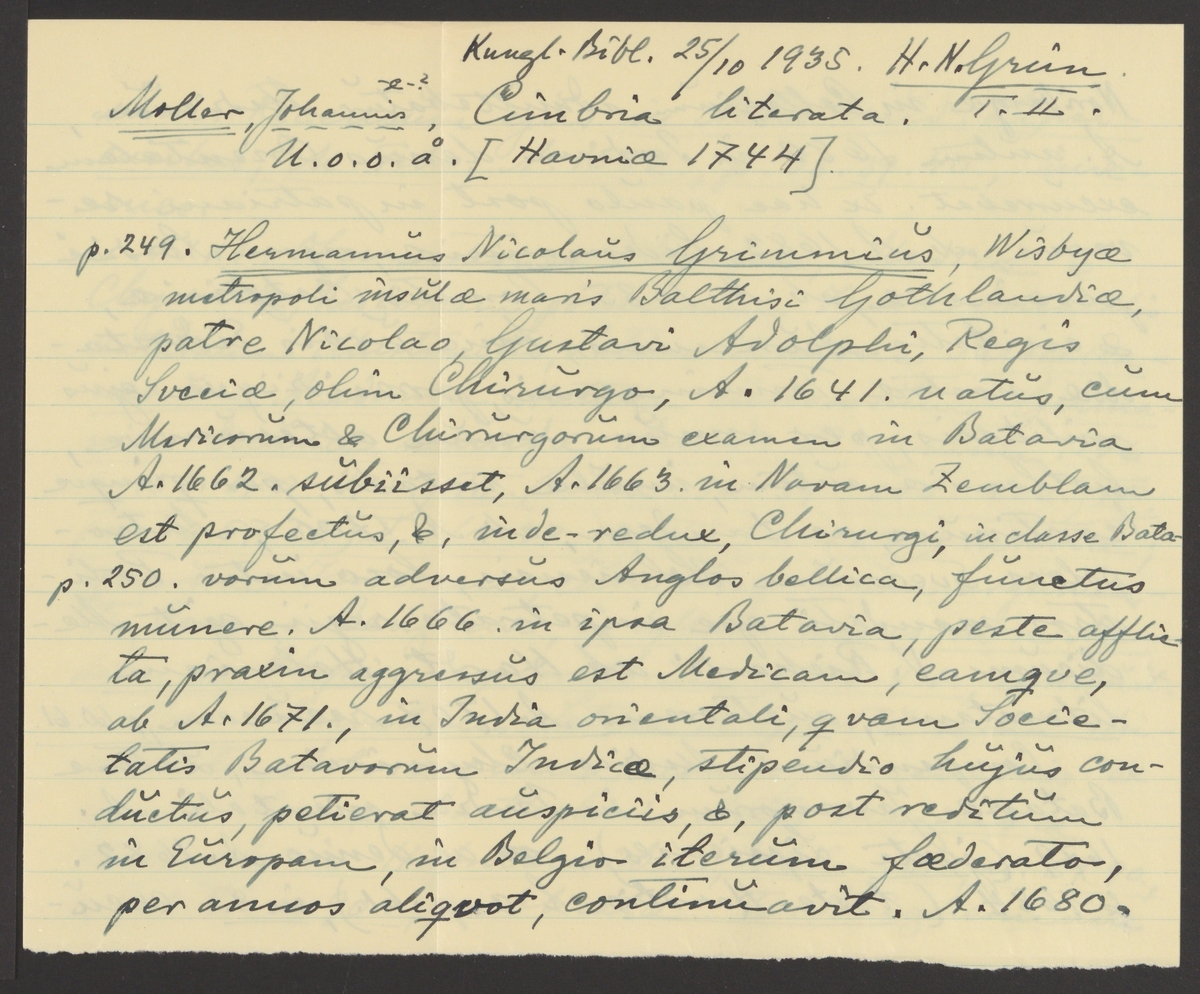 Kungl. Bibl. 25/10 1935. H. N. Grün.
-e-?
Moller, Johannis, Cimbria literata. T. II.
U. o. o. å. [Havniæ 1744].
p. 249. Hermannus Nicolaus Grimmius, Wisbyæ
metropoli insulæ maris Balthisi Gothlandiæ,
patre Nicolao, Gustavi Adolphi, Regis
Sveciæ, olim Chirurgo, A. 1641. natus, cum
Medicorum & Chirurgorum examen in Batavia
A. 1662. subiisset, A. 1663. in Novam Zemblam
est profectus, &, inde-redux, Chirurgi, in classe Bata-
p. 250. vorum adversus Anglos bellica, functus
munere. A. 1666. in ipsa Batavia, peste afflic-
ta, praxin aggressus est Medicam, eamqve,
ab A. 1671., in India orientali, qvam Socie-
tatis Batavorum Indicæ, stipendio hujus con-
ductus, petierat auspiciis, &, post reditum
in Europam, in Belgio iterum fœderato,
per annos aliqvot, continuavit. A. 1680.